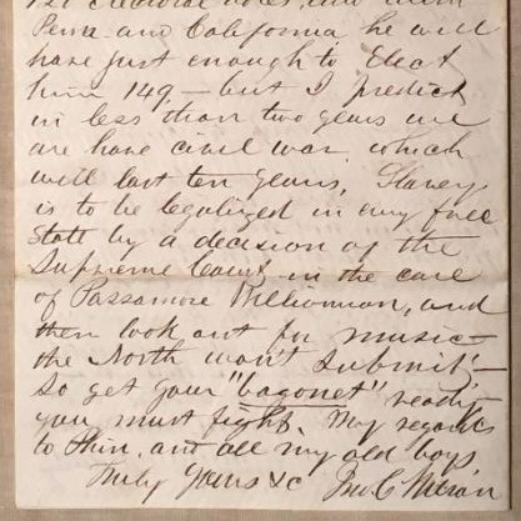 121 electoral votes, and with
Penna and California he will
have just enough to Elect
him 149 — but I predict
in less than two years we
are have civil war which
will last ten years, Slavery
is to be legalized in any free
State by a decision of the
Supreme Court in the case
of Passamore Williamson, and
then look out for music —
the North won't submit —
So get your "bagonet" ready
you must fight. My regards
to Thin. and all my old boys
Truly Yours &c Jno. C.